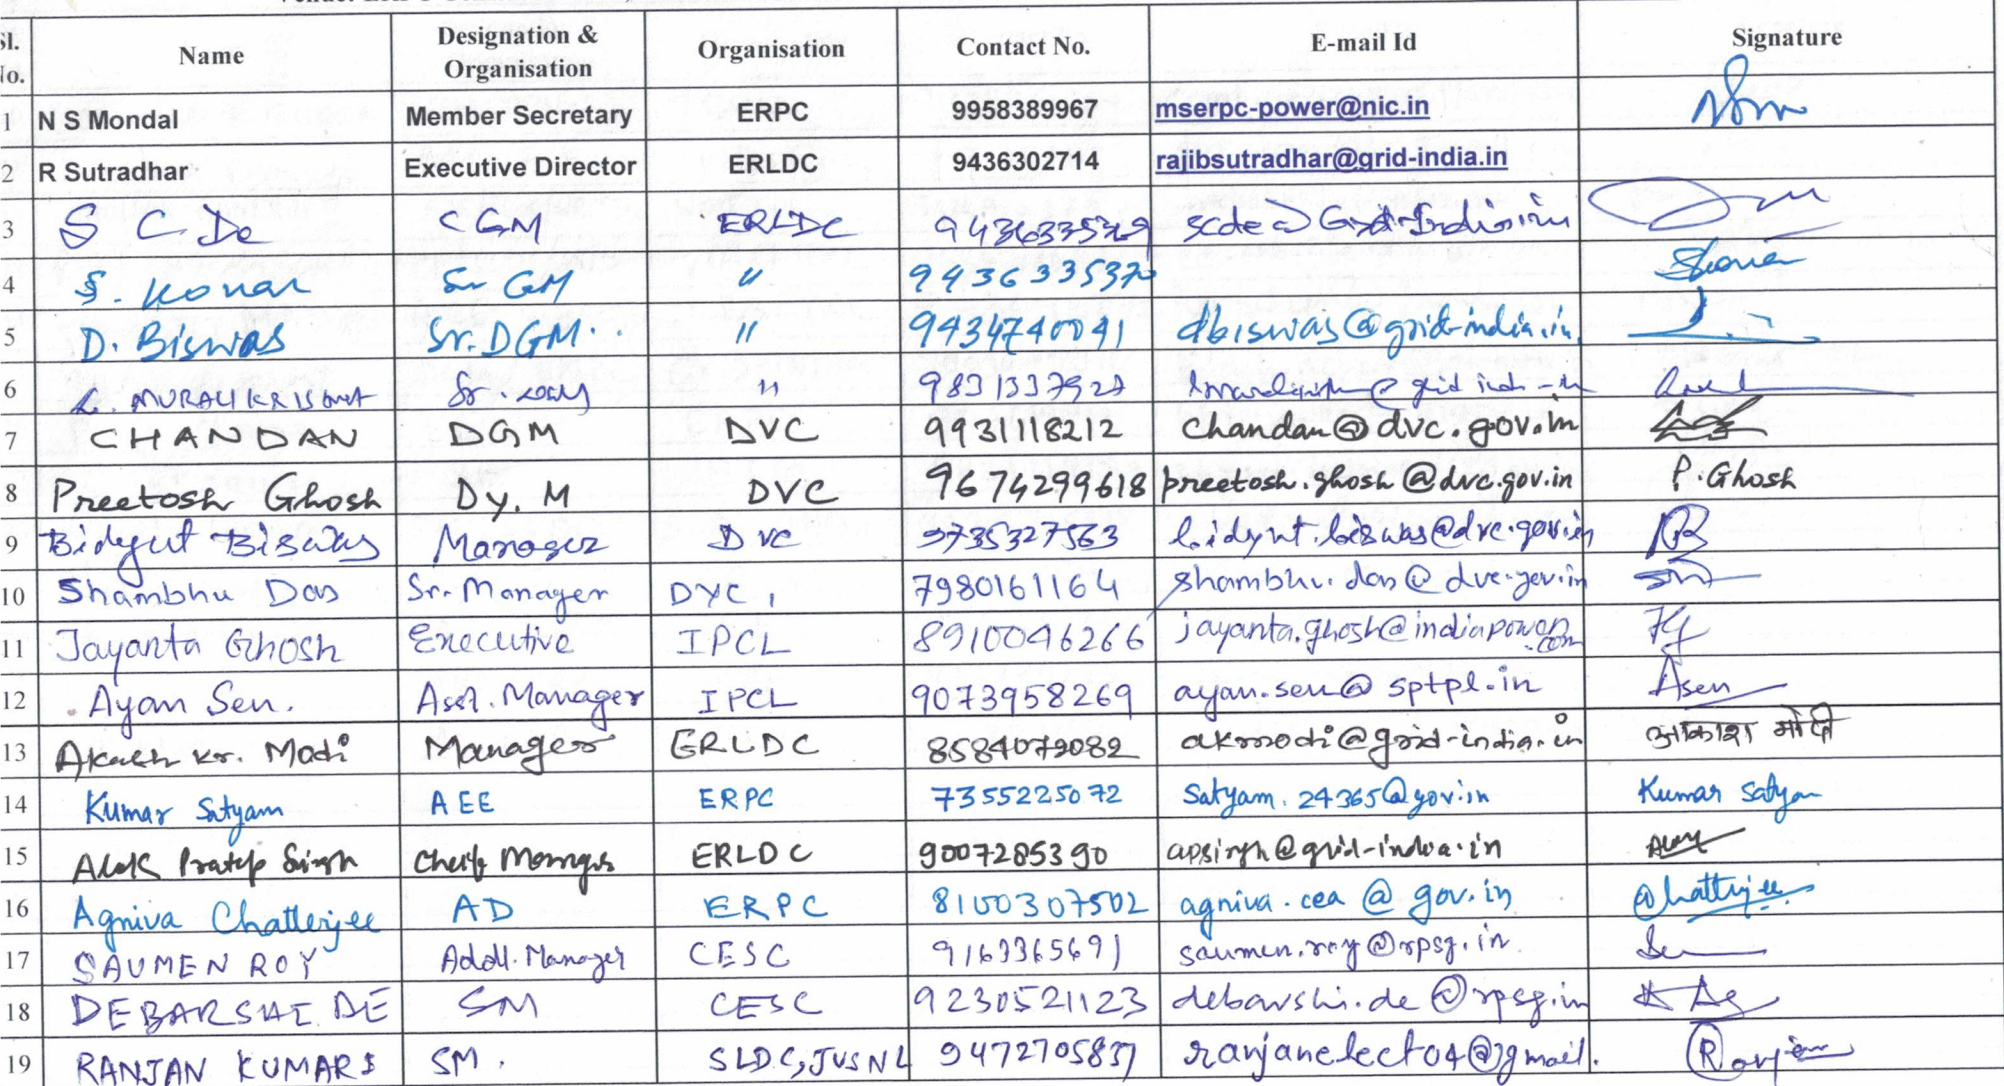 Sl. No. Name Designation & Organisation Organisation Contact No. E-mail Id Signature
1 N S Mondal Member Secretary ERPC 9958389967 mserpc-power@nic.in
2 R Sutradhar Executive Director ERLDC 9436302714 rajibsutradhar@grid-india.in
3 S C De CGM ERLDC 9436335369 scde@Grid-India.in
4 S. Konar Sr GM " 9436335370
5 D. Biswas Sr. DGM " 9434740041 dbiswas@grid-india.in
6 L. MURALIKRISHNA Sr. "
7 CHANDAN DGM DVC 9931118212 chandan@dvc.gov.in
8 Preetosh Ghosh Dy. M DVC 9674299618 preetosh.ghosh@dvc.gov.in P. Ghosh
9 Bidyut Biswas Manager DVC bidyut.biswas@dvc.gov.in
10 Shambhu Das Sr. Manager DVC, 7980161164 shambhu.das@dvc.gov.in
11 Jayanta Ghosh Executive IPCL 8910046266 jayanta.ghosh@indiapower.com
12 Ayan Sen. Asst. Manager IPCL 9073958269 ayan.sen@sptpl.in Asen
13 Akash Kr. Modi Manager ERLDC 8584079082 akmodi@grid-india.in आकाश मोदी
14 Kumar Satyam AEE ERPC 7355225072 Satyam.24365@gov.in Kumar Satyam
15 Alok Pratap Singh Cheif Manager ERLDC 9007285390 apsingh@grid-india.in Alok
16 Agniva Chatterjee AD ERPC 8100307502 agniva.cea@gov.in Chatterjee
17 SAUMEN ROY Addl. Manager CESC 9163365691 saumen.roy@rpsg.in
18 DEBARSHI DE SM CESC 9230521123 debarshi.de@rpsg.in
19 RANJAN KUMAR SM. SLDC, JUSNL 9472705837 ranjanelect04@gmail. Ranjan